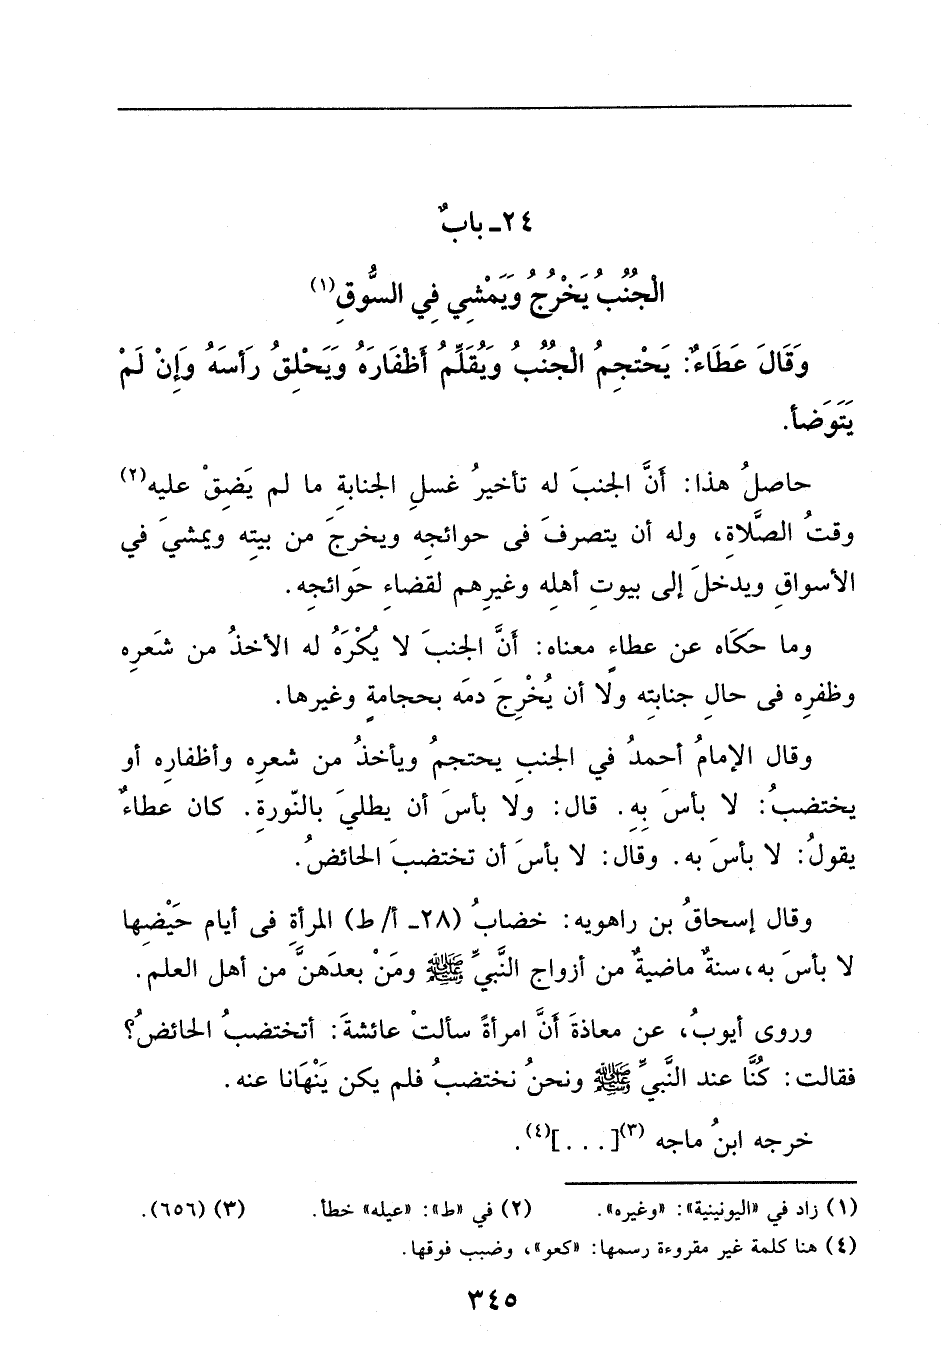 ٢٤ـ بابٌ
الْجُنُبُ يَخْرُجُ وَيَمْشِي فِي السُّوقِ(١)
وَقَالَ عَطَاءٌ: يَحْتَجِمُ الْجُنُبُ وَيُقَلِّمُ أَظْفَارَهُ وَيَحْلِقُ رَأسَهُ وَإِنْ لَمْ
يَتَوَضأ.
حاصلُ هذا: أَنَّ الجنبَ له تأخيرُ غسلِ الجنابةِ ما لم يَضِقْ عليه(٢)
وقتُ الصَّلاةِ، وله أن يتصرفَ فى حوائجِه ويخرجَ من بيتِه ويمشيَ في
الأسواقِ ويدخلَ إلى بيوتِ أهلِه وغيرِهم لقضاءِ حَوائجِه.
وما حَكَاه عن عطاءٍ معناه: أَنَّ الجنبَ لا يُكْرَهُ له الأخذُ من شَعرِه
وظفرِه فى حالِ جنابتِه ولا أن يُخْرِجَ دمَه بحجامةٍ وغيرها.
وقال الإمامُ أحمدُ في الجنبِ يحتجمُ ويأخذُ من شعرِه وأظفارِه أو
يختضبُ: لا بأسَ بِهِ. قال: ولا بأسَ أن يطليَ بالنّورةِ. كان عطاءٌ
يقولُ: لا بأسَ به. وقال: لا بأسَ أن تختضبَ الحائضُ.
وقال إسحاقُ بن راهويه: خضابُ (٢٨ـ أ/ ط) المرأةِ فى أيام حَيْضِها
لا بأسَ به، سنةٌ ماضيةٌ من أزواج النَّبيِّ ﷺ ومَنْ بعدَهنَّ من أهل العلم.
وروى أيوبُ، عن معاذةَ أَنَّ امرأةً سألتْ عائشةَ: أتختضبُ الحائضُ؟
فقالت: كُنَّا عند النَّبيِّ ﷺ ونحنُ نختضبُ فلم يكن يَنْهَانا عنه.
خرجه ابنُ ماجه (٣)[. . .](٤).
(١) زاد في «اليونينية»: «وغيره». (٢) في «ط»: «عيله» خطأ. (٣) (٦٥٦).
(٤) هنا كلمة غير مقروءة رسمها: «كعو»، وضبب فوقها.
٣٤٥